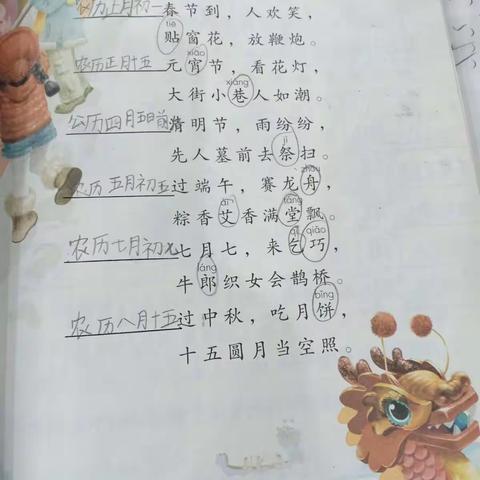 农历正月初一春节到，人欢笑，
tiē
贴窗花，放鞭炮。
xiāo
农历正月十五 元宵节，看花灯，
xiàng
大街小巷人如潮。
公历四月五日前 清明节，雨纷纷，
jì
先人墓前去祭扫。
zhōu
农历五月初五过端午，赛龙舟，
ài táng
粽香艾香满堂飘。
qǐ qiǎo
农历七月初七七月七，来乞巧，
láng
牛郎织女会鹊桥。
bǐng
农历八月十五过中秋，吃月饼，
十五圆月当空照。